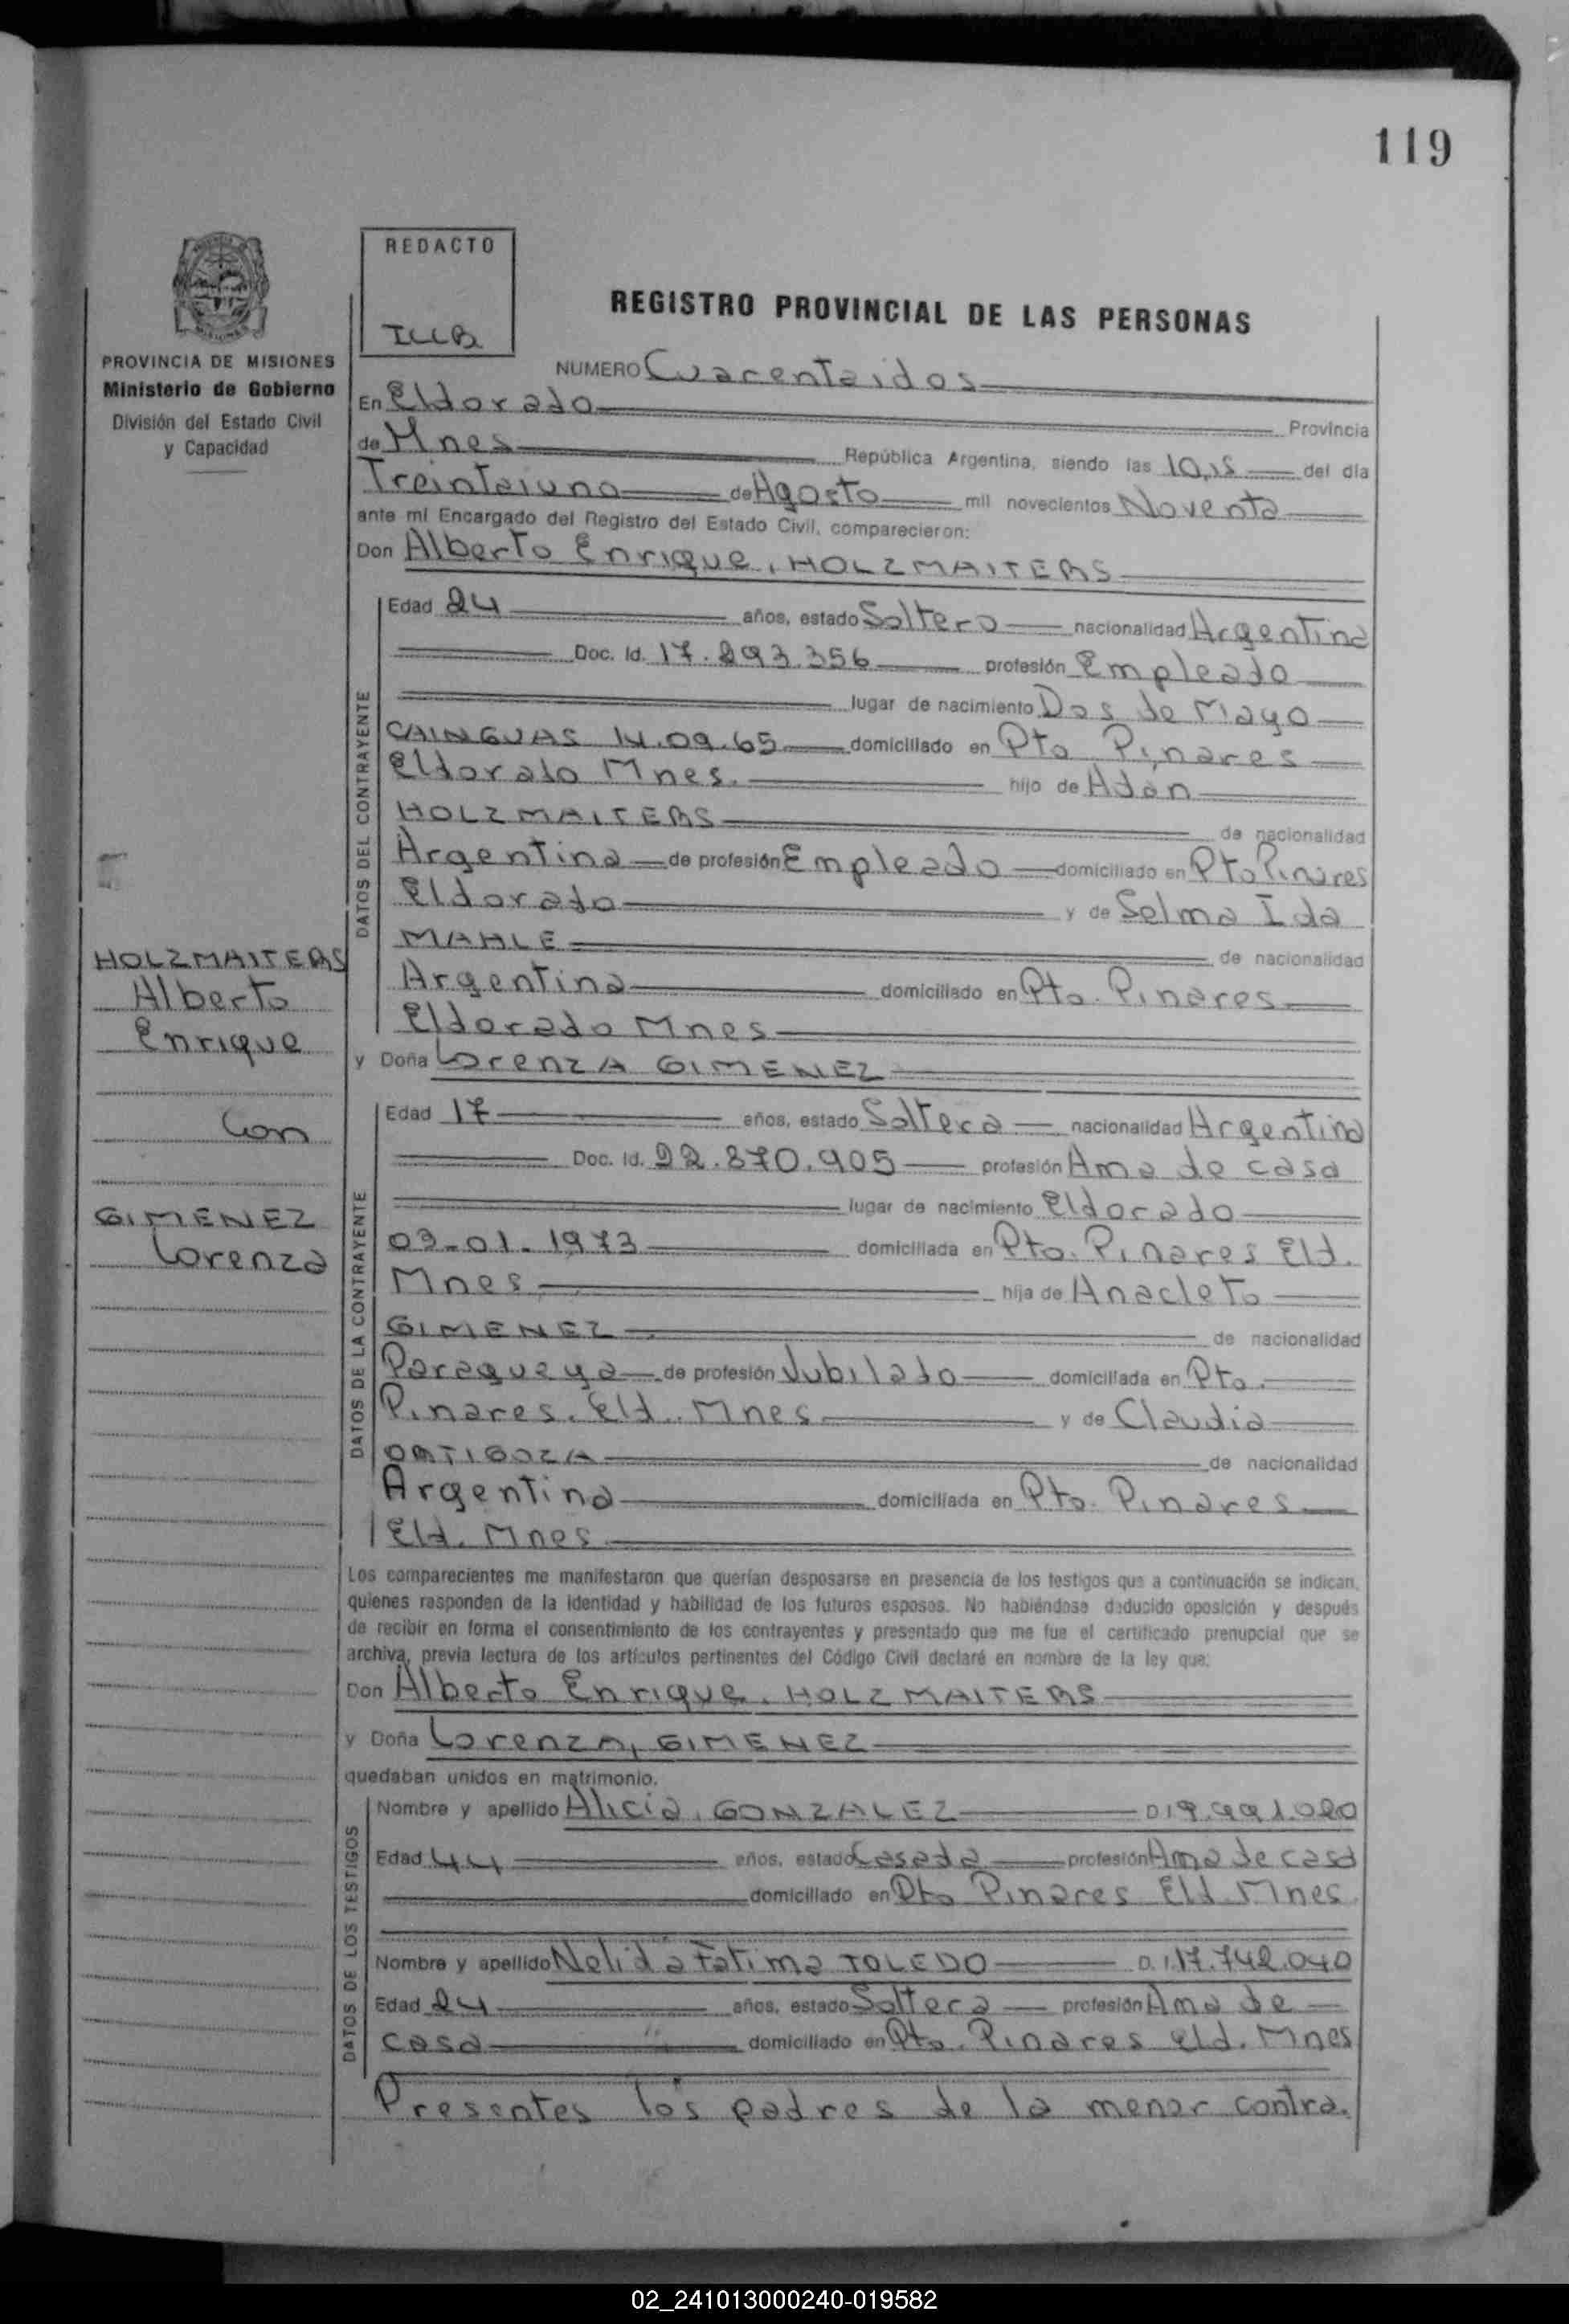 119
REDACTO
REGISTRO PROVINCIAL DE LAS PERSONAS
PROVINCIA DE MISIONES
Ministerio de Gobierno
División del Estado Civil
y Capacidad
NUMERO Cuarentaidos
En Eldorado Provincia
de Mnes República Argentina, siendo las 10,15 del día
Treintaiuno de Agosto mil novecientos Noventa
ante mí Encargado del Registro del Estado Civil, comparecieron:
Don Alberto Enrique, HOLZMAITERS
DATOS DEL CONTRAYENTE
Edad 24 años, estado Soltero nacionalidad Argentina
Doc. Id. 17.293.356 profesión Empleado
lugar de nacimiento Dos de Mayo
CAINGUAS 14.09.65 domiciliado en Pto Pinares
Eldorado Mnes. hijo de Adan
HOLZMAITERS de nacionalidad
Argentina de profesión Empleado domiciliado en Pto Pinares
Eldorado y de Selma Ida
MAHLE de nacionalidad
Argentina domiciliado en Pto. Pinares
Eldorado Mnes
HOLZMAITERS
Alberto
Enrique
Con
GIMENEZ
Lorenza
y Doña Lorenza GIMENEZ
DATOS DE LA CONTRAYENTE
Edad 17 años, estado Soltera nacionalidad Argentina
Doc. Id. 22.870.905 profesión Ama de casa
lugar de nacimiento Eldorado
03-01-1973 domiciliada en Pto. Pinares Eld.
Mnes hija de Anacleto
GIMENEZ de nacionalidad
Paragueya de profesión Jubilado domiciliada en Pto.
Pinares. Eld. Mnes y de Claudia
ORTIGOZA de nacionalidad
Argentina domiciliada en Pto. Pinares
Eld. Mnes
Los comparecientes me manifestaron que querían desposarse en presencia de los testigos que a continuación se indican,
quienes responden de la identidad y habilidad de los futuros esposos. No habiéndose deducido oposición y después
de recibir en forma el consentimiento de los contrayentes y presentado que me fue el certificado prenupcial que se
archiva, previa lectura de los artículos pertinentes del Código Civil declaré en nombre de la ley que:
Don Alberto Enrique, HOLZMAITERS
y Doña Lorenza, GIMENEZ
quedaban unidos en matrimonio.
DATOS DE LOS TESTIGOS
Nombre y apellido Alicia, GONZALEZ DI 9.991.020
Edad 44 años, estado Casada profesión Ama de casa
domiciliado en Pto Pinares Eld. Mnes
Nombre y apellido Nelida Fatima TOLEDO D.I. 17.742.040
Edad 24 años, estado Soltera profesión Ama de
casa domiciliado en Pto. Pinares Eld. Mnes
Presentes los padres de la menor contra.
02_241013000240-019582